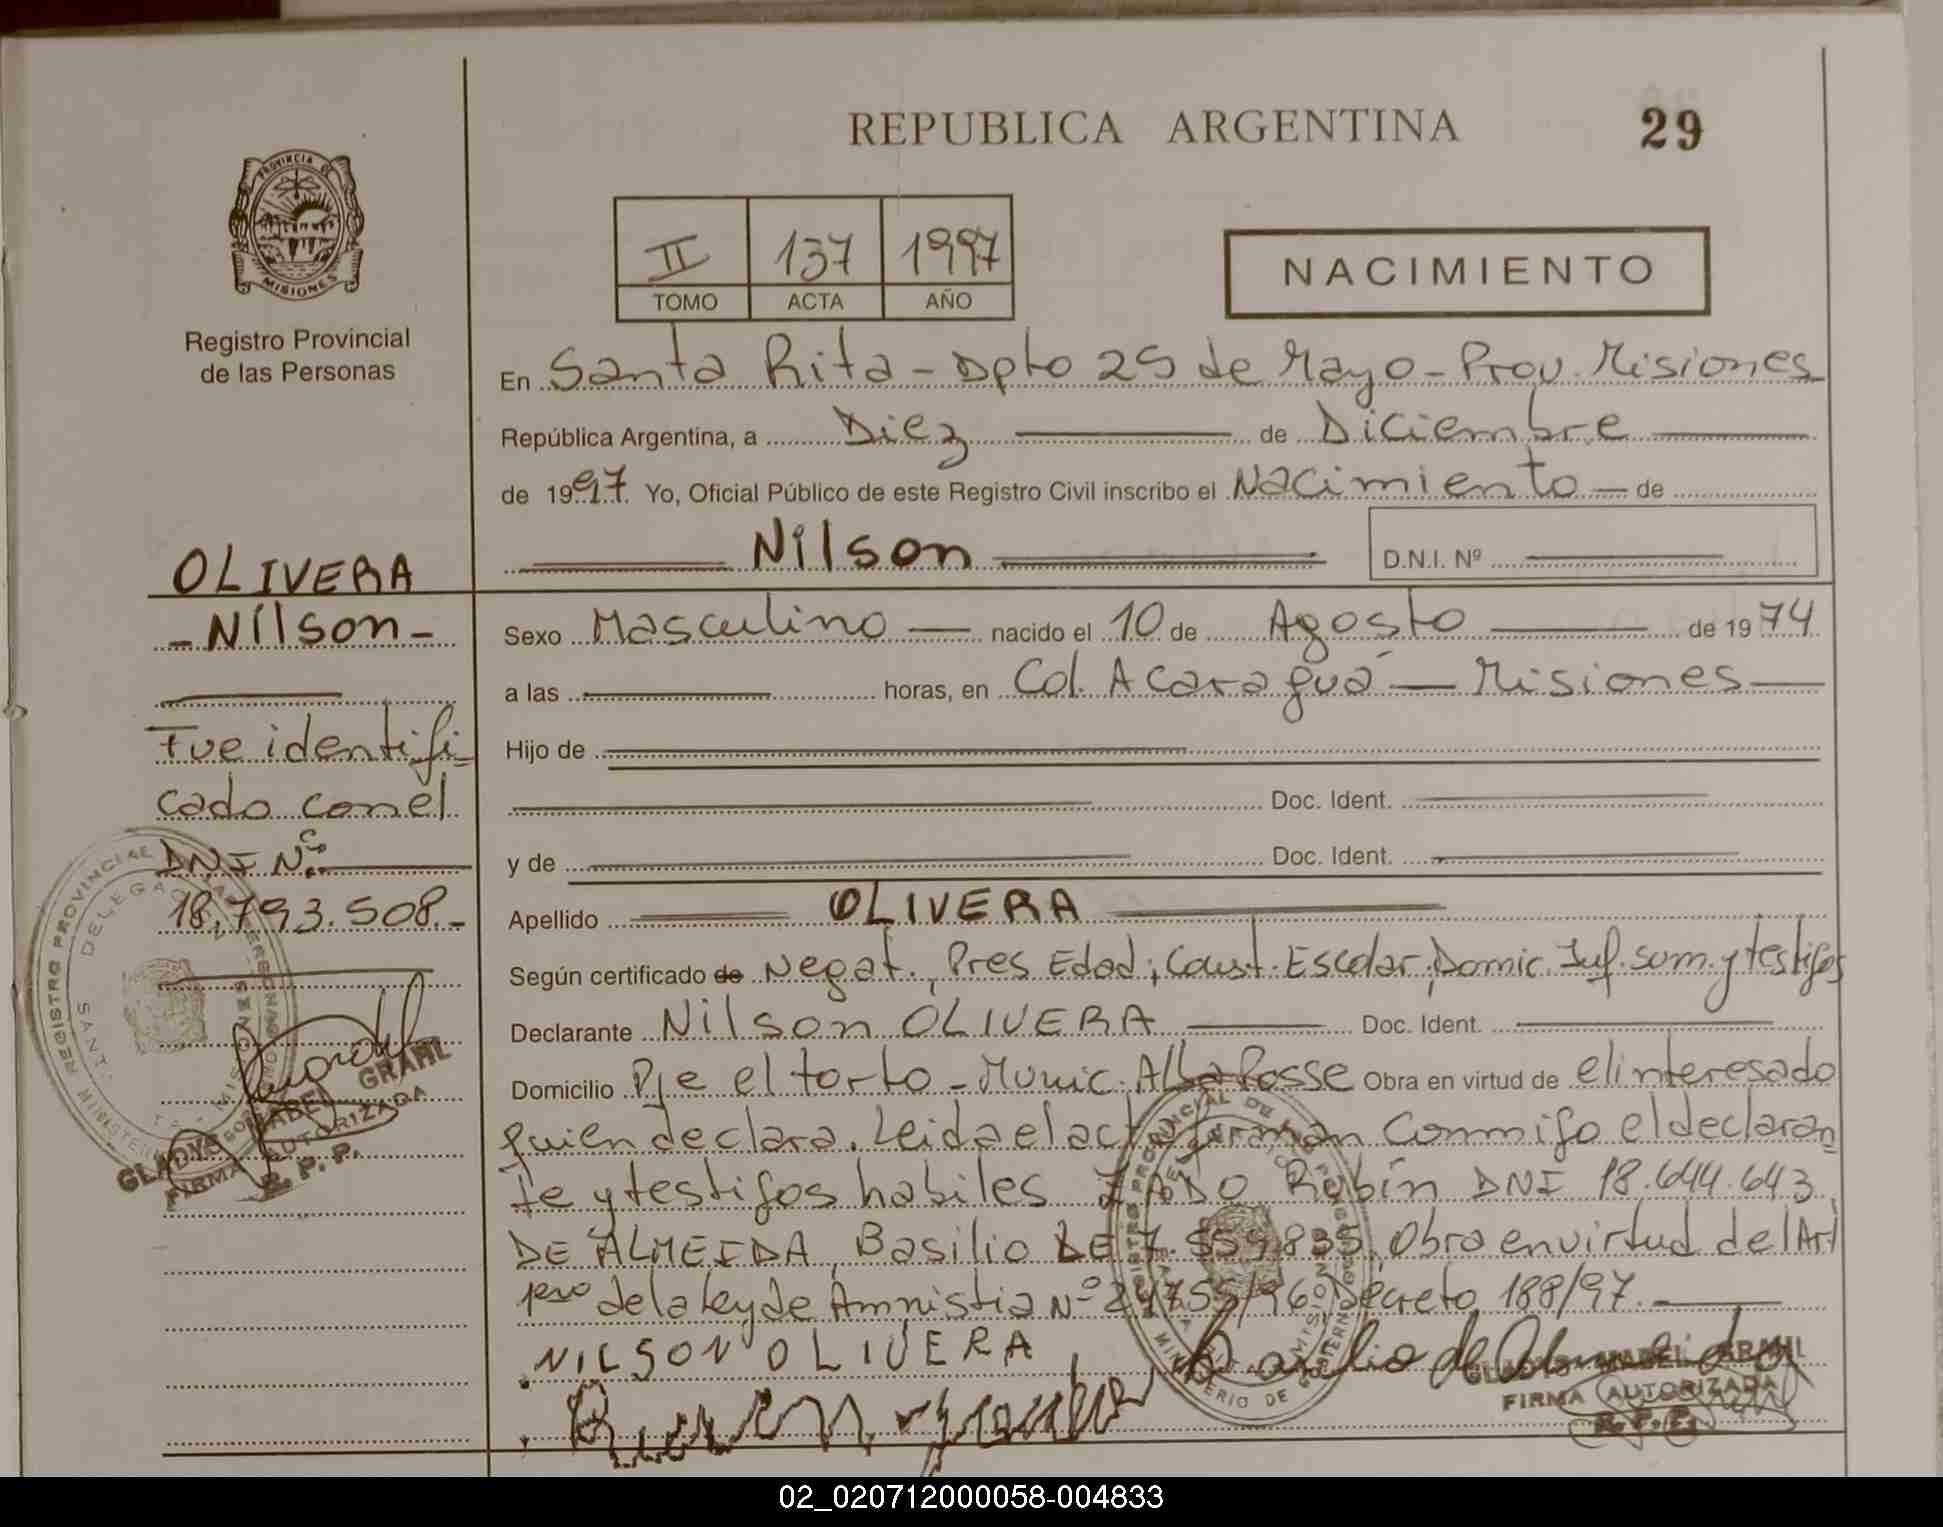 REPUBLICA ARGENTINA
29
PROVINCIA DE
MISIONES
Registro Provincial
de las Personas
II 137 1997
TOMO ACTA AÑO
NACIMIENTO
En Santa Rita - Dpto 25 de Mayo - Prov. Misiones
República Argentina, a Diez de Diciembre
de 1997 Yo, Oficial Público de este Registro Civil inscribo el Nacimiento de
Nilson D.N.I. Nº
OLIVERA
- Nilson -
Fue identifi-
cado con el
DNI Nº
18.793.508.-
GLADYS MABEL GRAHL
FIRMA AUTORIZADA
R.P.P.
Sexo Masculino nacido el 10 de Agosto de 1974
a las horas, en Col. Acaraguá - Misiones
Hijo de
Doc. Ident.
y de Doc. Ident.
Apellido OLIVERA
Según certificado de Negat., Pres Edad, Const. Escolar, Domic. Inf. sum. y testigos
Declarante Nilson OLIVERA Doc. Ident.
Domicilio Pje el torto - Munic. Alba Posse Obra en virtud de el interesado
quien declara. Leida el acta firman conmigo el declaran
te y testigos habiles Rubín DNI 18.644.643
DE ALMEIDA, Basilio LE 7.559.835, Obra en virtud del Art
1ero de la ley de Amnistia Nº 24755/96 Decreto 188/97.
NILSON OLIVERA
Basilio de Almeida
GLADYS MABEL GRAHL
FIRMA AUTORIZADA
R.P.P.
02_020712000058-004833